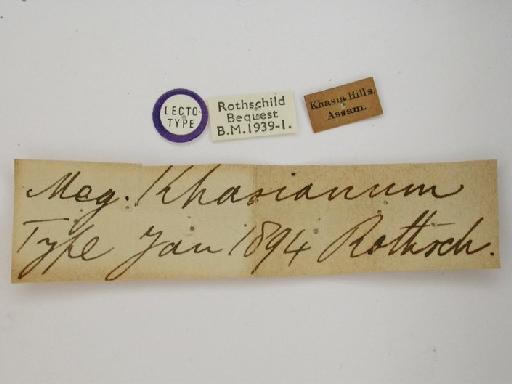 LECTO-
TYPE
Rothschild
Bequest
B.M.1939-1.
Khasia Hills,
Assam.
Meg. Khasianum
Type Jan 1894 Rothsch.